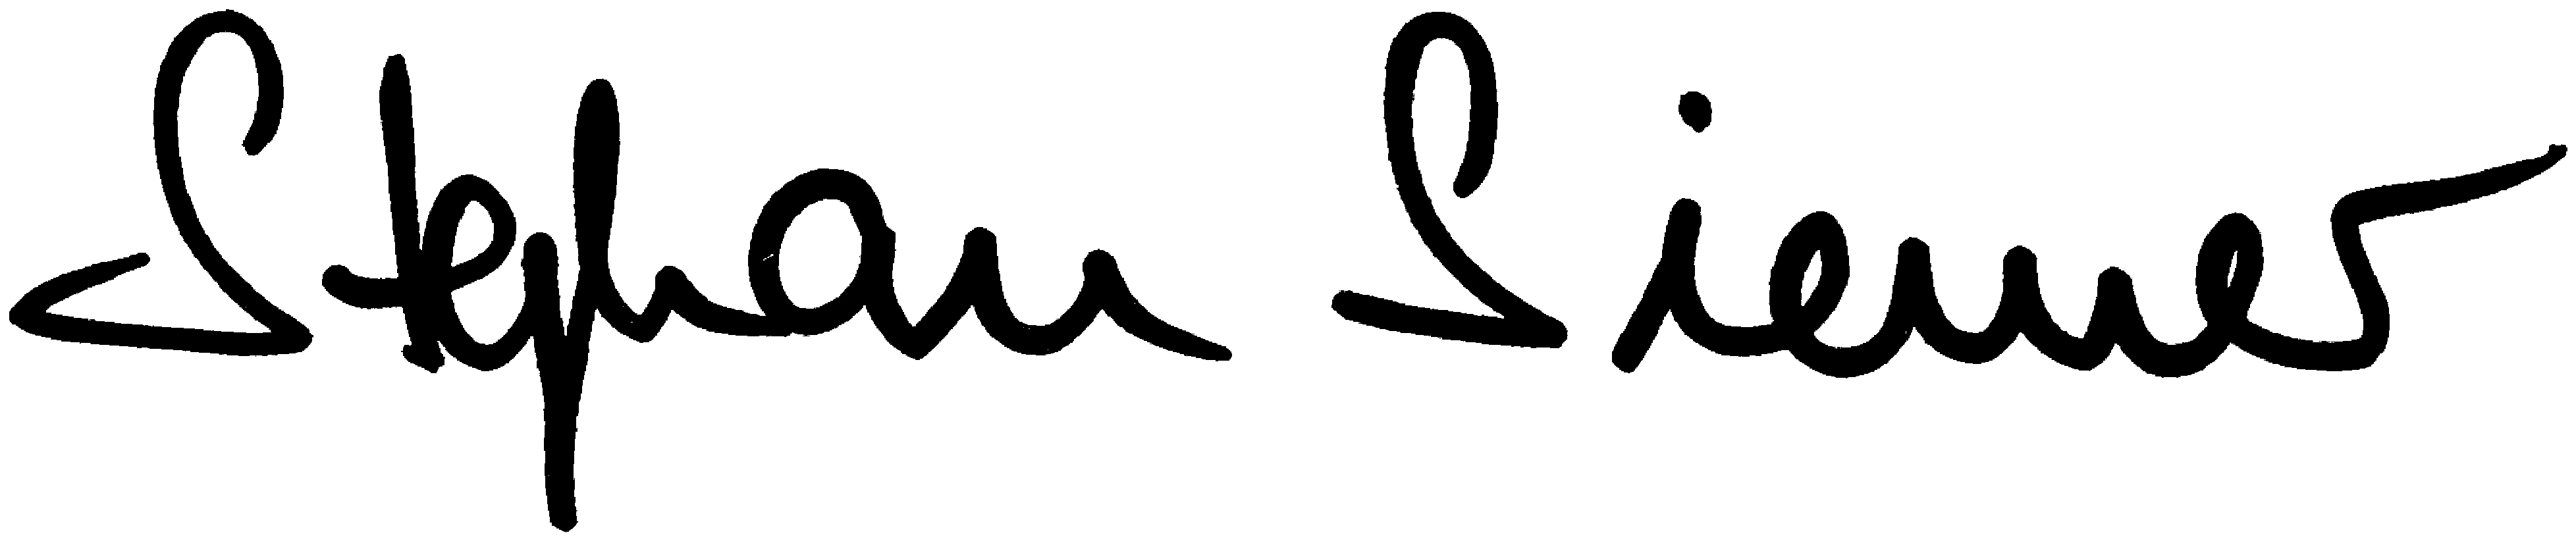 Stephan Siemer